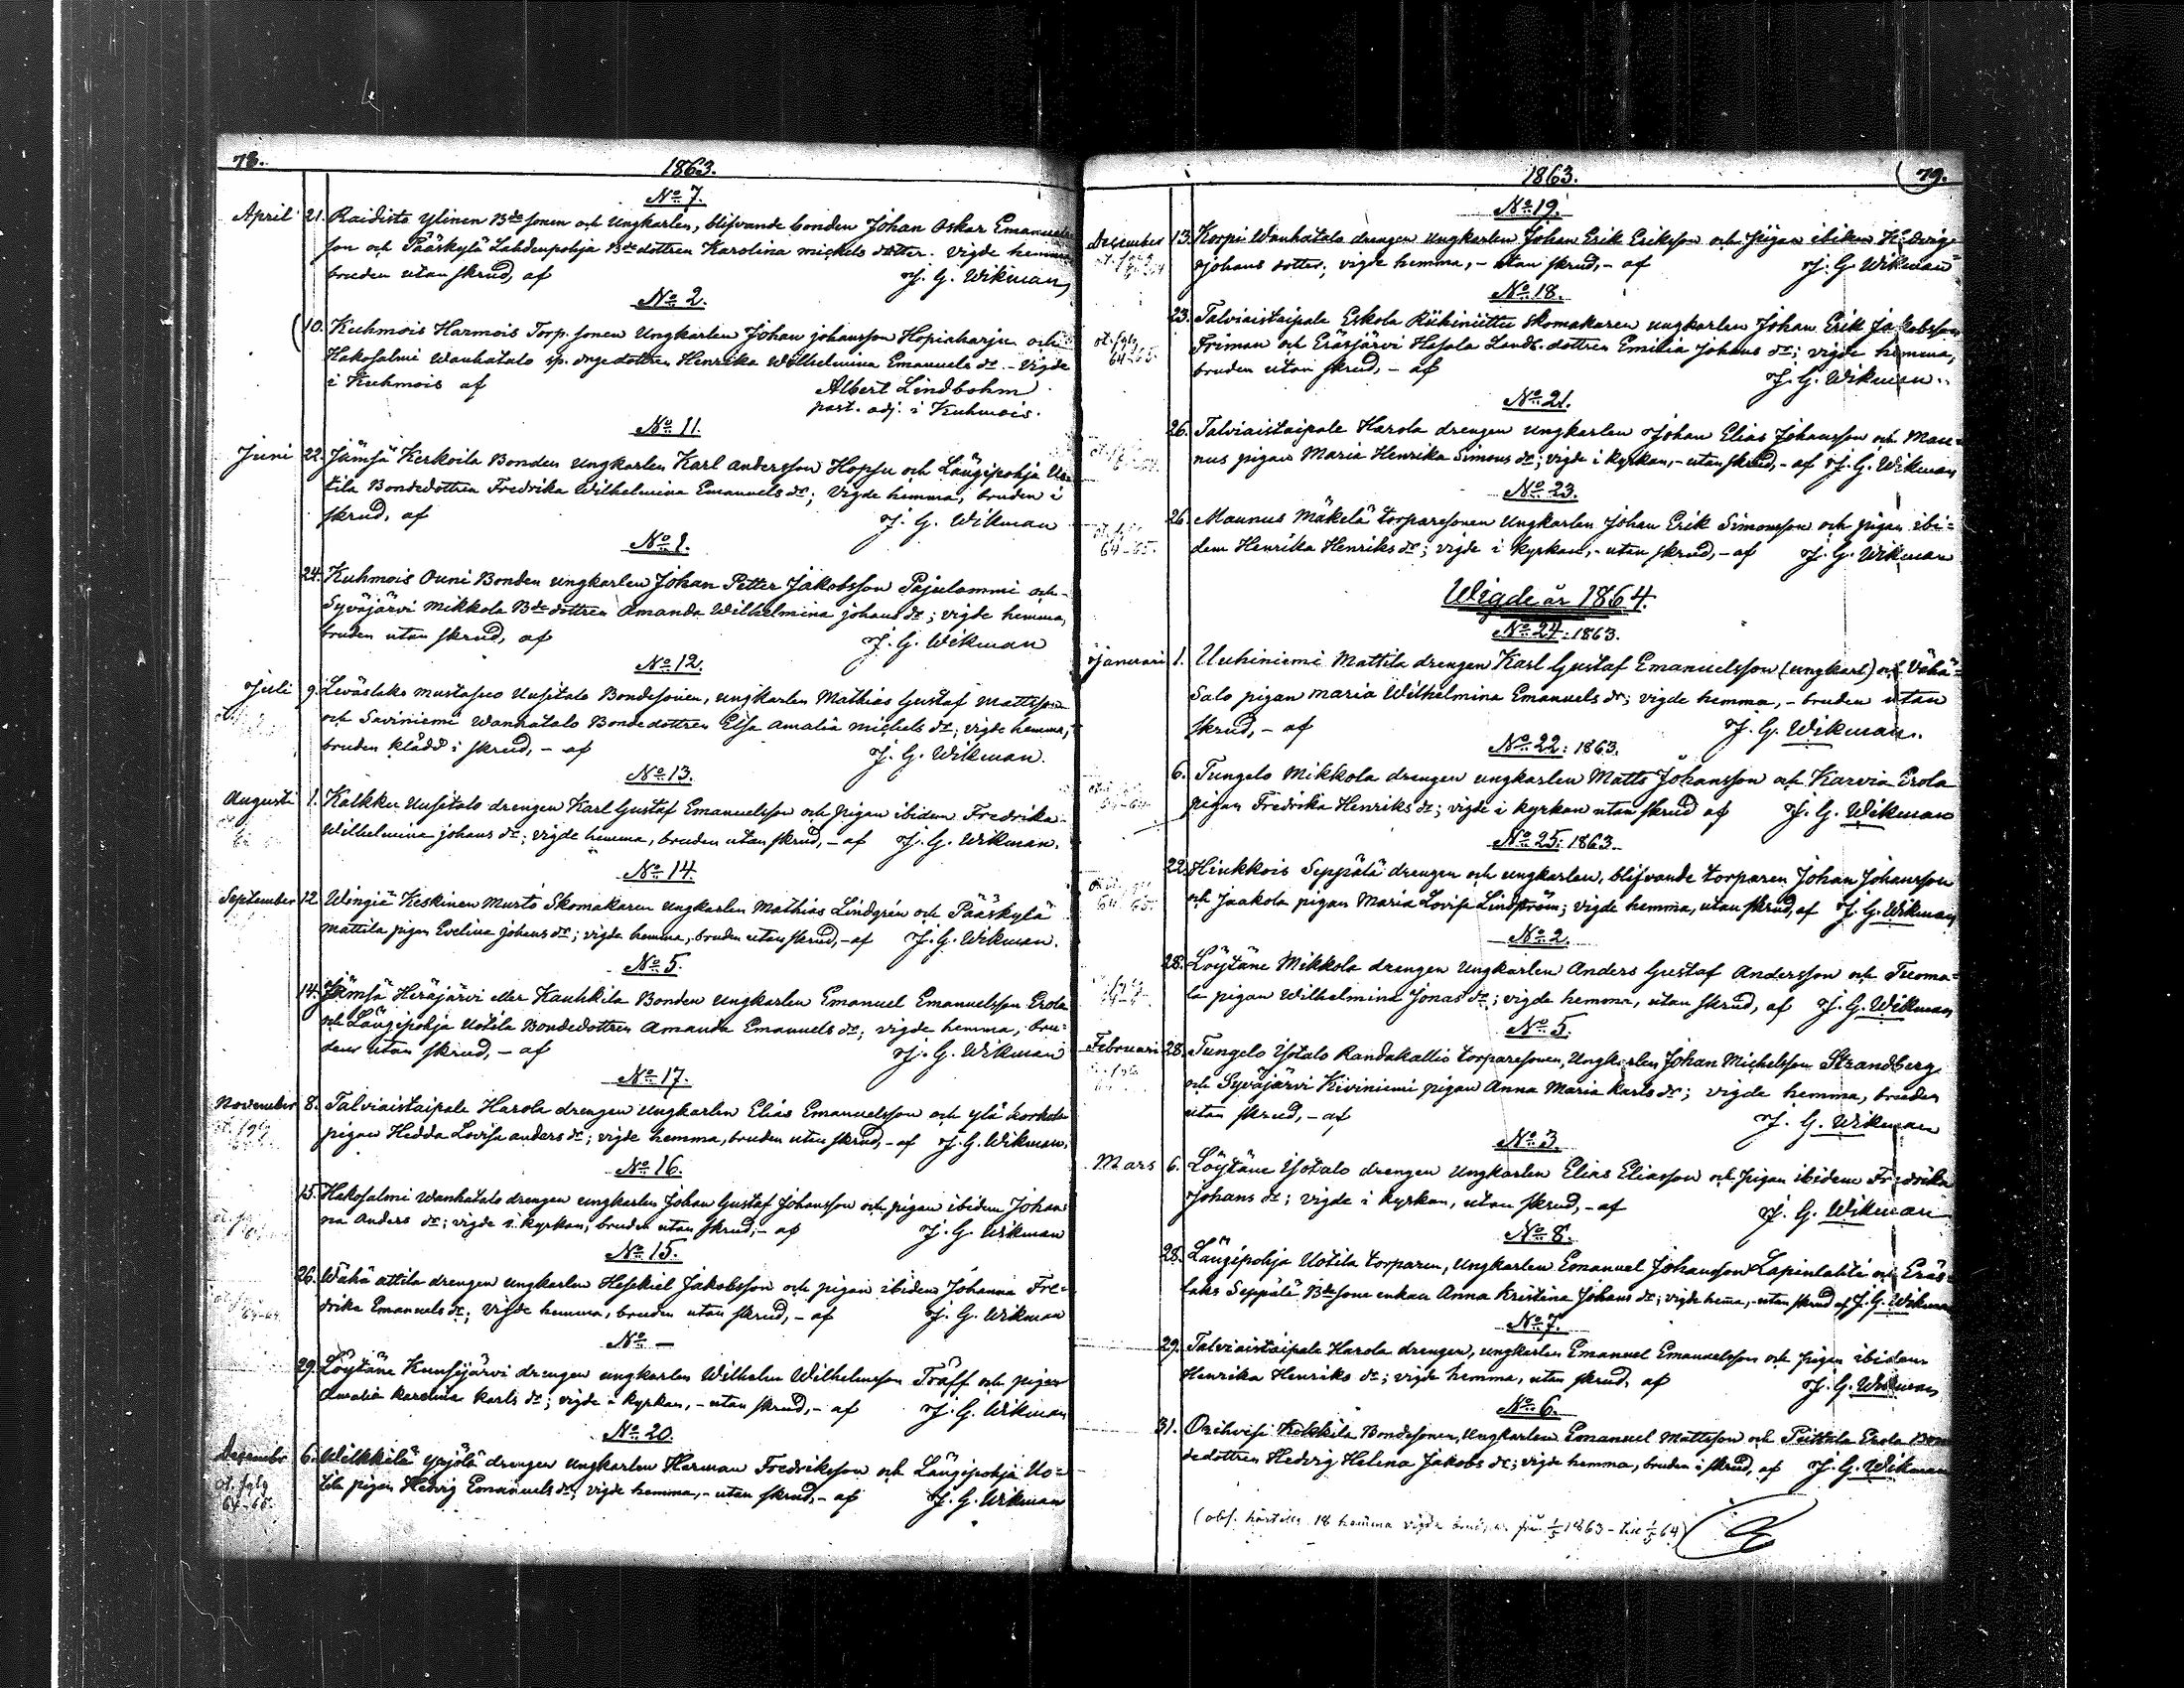 78.
1863.
No 7.
April 21. Raidisto Ylinen Bde sonen och Ungkarlen, blifvande bonden Johan Oskar Emanuels
son och Pääskylä Lahdenpohja Bde dottren Karolina Michels dotter. Vigde hemma
bruden utan skrud, af J. G. Wikman
No 2.
10. Kuhmois Harmois Torp. sonen Ungkarlen Johan Johansson Hopiaharju och
Hakosalmi Wanhatalo sp. dottren Henrika Wilhelmina Emanuels dr. - Vigde
i Kuhmois af Albert Lindbohm
past. adj. i Kuhmois.
No 11.
Juni 22. Jämsä Kerkoila Bonden Ungkarlen Karl Andersson Hopsu och Längipohja Uo-
tila Bondedottren Fredrika Wilhelmina Emanuels dr; Vigde hemma, bruden i
skrud, af J. G. Wikman
No 1.
24. Kuhmois Ouni Bonden Ungkarlen Johan Petter Jakobsson Pajulammi och
Syväjärvi Mikkola Bde dottren Amanda Wilhelmina Johans dr; vigde hemma,
bruden utan skrud, af J. G. Wikman
No 12.
Juli 9. Leväslaks Uusitalo Bondesonen, ungkarlen Mathias Gustaf Mattsson
och Saviniemi Wanhatalo Bondedottren Elsa Amalia Michels dr; vigde hemma,
bruden klädd i skrud, - af J. G. Wikman.
No 13.
Augusti 1. Kalkku Uusitalo drengen Karl Gustaf Emanuelsson och pigan ibidem Fredrika
Wilhelmina Johans dr; vigde hemma, bruden utan skrud, - af J. G. Wikman.
No 14.
September 12. Wingiä Keskinen Murto Skomakaren ungkarlen Mathias Lindgrén och Pääskylä
Mattila pigan Evelina Johans dr; vigde hemma, bruden utan skrud, - af J. G. Wikman.
No 5.
14. Jämsä Heräjärvi eller Kauhkila Bonden Ungkarlen Emanuel Emanuelsson Erola
och Längipohja Uotila Bondedottren Amanda Emanuels dr; vigde hemma, bru-
den utan skrud, - af J. G. Wikman
No 17.
November 8. Talviaistaipale Harola drengen Ungkarlen Elias Emanuelsson och Ylä
pigan Hedda Lovisa Anders dr; vigde hemma, bruden utan skrud, - af J. G. Wikman.
No 16.
15. Hakosalmi Wanhatalo drengen ungkarlen Johan Gustaf Johansson och pigan ibidem Johan
na Anders dr; vigde i kyrkan, bruden utan skrud, - af J. G. Wikman
No 15.
26. Wähä attila drengen ungkarlen Heskiel Jakobsson och pigan ibidem Johanna Fre-
drika Emanuels dr; vigde hemma, bruden utan skrud, - af J. G. Wikman
No -
29. Löytäne Kuusijärvi drengen ungkarlen Wilhelm Wilhelmsson Träff och pigan
Amalia Karolina Karls dr; vigde i kyrkan, - utan skrud, - af J. G. Wikman
No 20.
December 6. Wilkkilä Yrjölä drengen ungkarlen Herman Fredriksson och Längipohja Uo-
tila pigan Hedvig Emanuels dr; vigde hemma, - utan skrud, - af J. G. Wikman
ot. fglg
64-65.
1863.
79.
No 19.
December 13. Korpi Wanhatalo drengen Ungkarlen Johan Erik Eriksson och pigan ibidem Hedvig
Johans dotter; vigde hemma, - utan skrud, - af J. G. Wikman
No 18.
23. Talviaistaipale Eskola Riihiniittu Skomakaren ungkarlen Johan Erik Jakobsson
ot. fglg
64-65.
Friman och Eräsjärvi Hasala Landb. dottren Emilia Johans dr; vigde hemma,
bruden utan skrud, - af J. G. Wikman.
No 21.
26. Talviaistaipale Harola drengen ungkarlen Johan Elias Johansson och Mau-
nus pigan Maria Henrika Simons dr; vigde i kyrkan, - utan skrud, - af J. G. Wikman
No 23.
26. Maunus Mäkelä torparesonen Ungkarlen Johan Erik Simonsson och pigan ibi-
64-65.
dem Henrika Henriks dr; vigde i kyrkan, - utan skrud, - af J. G. Wikman
Wigde år 1864.
No 24: 1863.
Januari 1. Uuhiniemi Mattila drengen Karl Gustaf Emanuelsson (ungkarl) och Vähä-
Salo pigan Maria Wilhelmina Emanuels dr; vigde hemma, - bruden utan
skrud, - af J. G. Wikman.
No 22: 1863.
6. Tungelo Mikkola drengen ungkarlen Matts Johansson och Karvia Erola
pigan Fredrika Henriks dr; vigde i kyrkan utan skrud af J. G. Wikman
No 25: 1863.
22. Hinkkois Seppälä drengen och ungkarlen, blifvande torparen Johan Johansson
och Jaakola pigan Maria Lovisa Lindström; vigde hemma, utan skrud, af J. G. Wikman
No 2.
28. Löytäne Mikkola drengen Ungkarlen Anders Gustaf Andersson och Tuoma-
la pigan Wilhelmina Jonas dr; vigde hemma, utan skrud, af J. G. Wikman
No 5.
Februari 28. Tungelo Isotalo Randakallio torparesonen, Ungkarlen Johan Michelsson Strandberg
och Syväjärvi Kiviniemi pigan Anna Maria Karls dr; vigde hemma, bruden
utan skrud, - af J. G. Wikman
No 3.
Mars 6. Löytäne Isotalo drengen Ungkarlen Elias Eliasson och pigan ibidem Fredrika
Johans dr; vigde i kyrkan, utan skrud, - af J. G. Wikman
No 8.
28. Längipohja Uotila torparen, Ungkarlen Emanuel Johansson Lapinlahti och Eräs-
laks Seppälä Bde sone enkan Anna Kristina Johans dr; vigde hemma, - utan skrud af J. G. Wikman
No 7.
29. Talviaistaipale Harola drengen, ungkarlen Emanuel Emanuelsson och pigan ibidem
Henrika Henriks dr; vigde hemma, utan skrud, af J. G. Wikman
No 6.
31. Orihvesi Kokkila Bondesonen, Ungkarlen Emanuel Mattsson och Puttala Erola Bon
dedottren Hedvig Helena Jakobs dr; vigde hemma, bruden i skrud, af J. G. Wikman
(obs. 18 hemma vigde från 1/5 1863 - till 1/5 64)